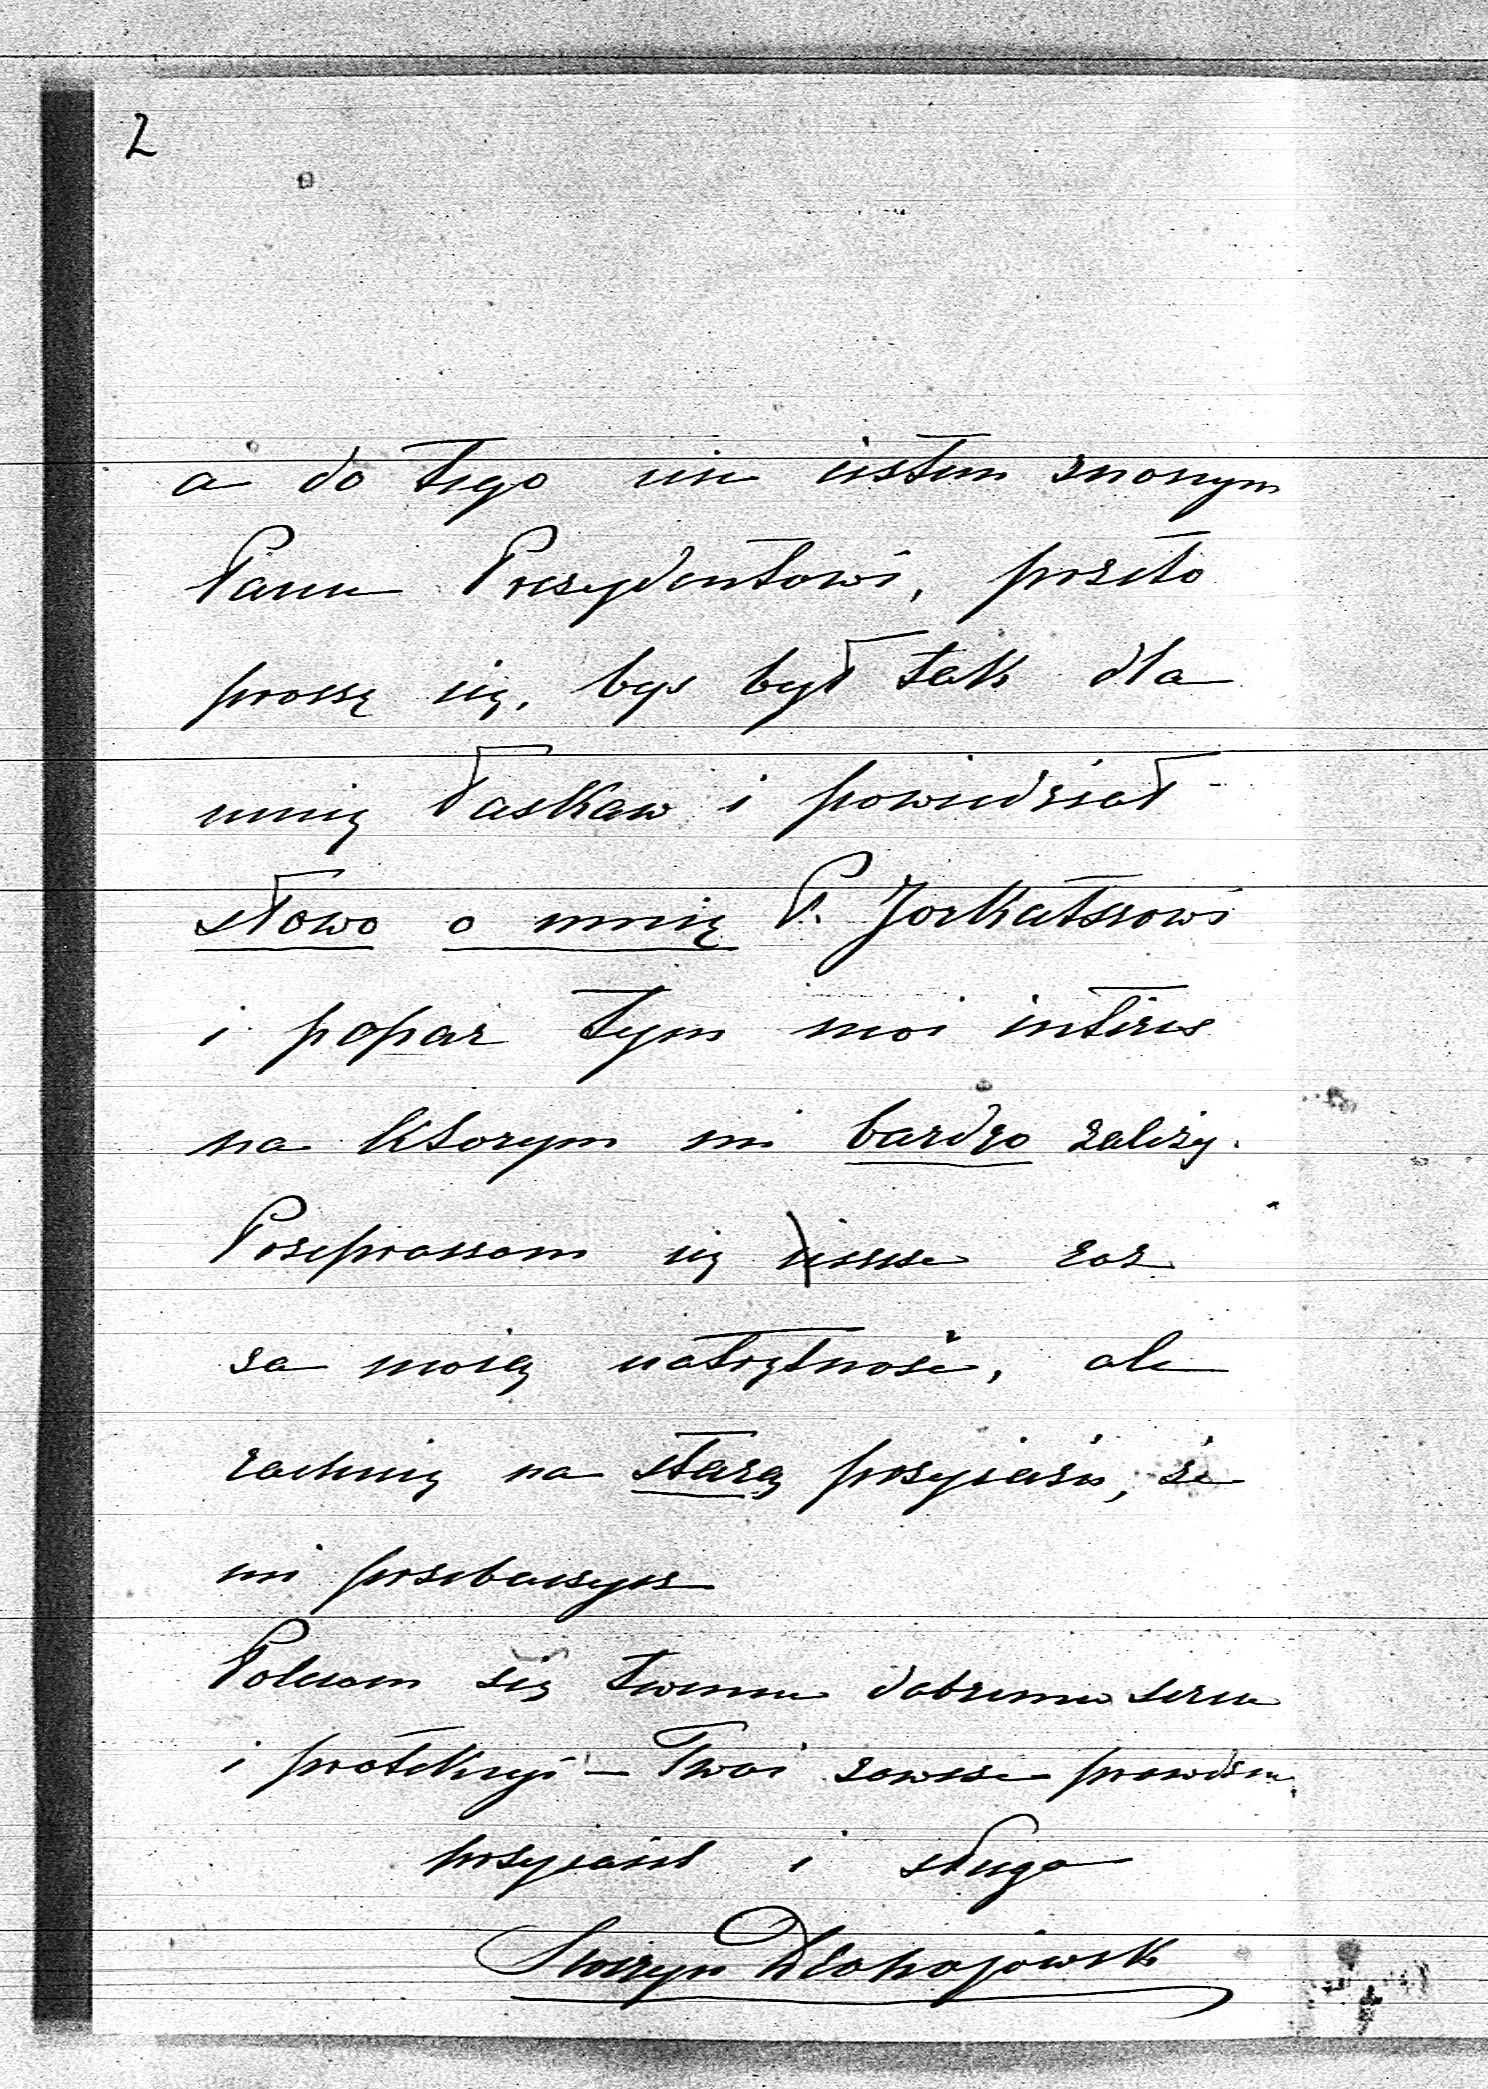 2
a do tego nie jestem znanym
Panu Prezydentowi, przeto
proszę cię, byś był tak dla
mnię łaskaw i powiedział
słowo o mnię P. Jorkatszowi
i poparz tym moi interes
na ktorym mi bardzo zależy.
Przepraszam cię jeszcze raz
za moią natrętność, ale
rachuię na starą przyiaźń, że
mi przebaczysz
Polecam się twemu dobremu sercu
i protekcyi – Twoi zawsze prawdziw.
przyiaciel i sługa